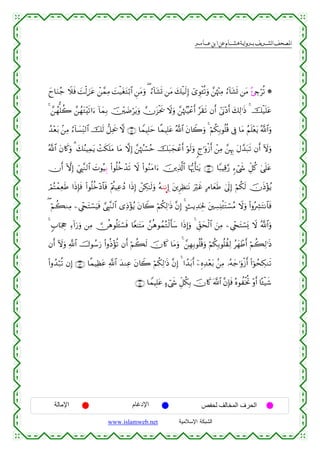 المصحف الشريف برواية هشام عن ابن عامر
۞ تُرْجِئُ مَن تَشَآءُ مِنْهُنَّ وَتُـْٔوِىٓ إِلَيْكَ مَن تَشَآءُ ۖ وَمَنِ ٱبْتَغَيْتَ مِمَّنْ عَزَلْتَ فَلَا جُنَاحَ
عَلَيْكَ ۚ ذَٰلِكَ أَدْنَىٰٓ أَن تَقَرَّ أَعْيُنُهُنَّ وَلَا يَحْزَنَّ وَيَرْضَيْنَ بِمَآ ءَاتَيْتَهُنَّ كُلُّهُنَّ ۚ
وَٱللَّهُ يَعْلَمُ مَا فِى قُلُوبِكُمْ ۚ وَكَانَ ٱللَّهُ عَلِيمًا حَلِيمًا لَّا يَحِلُّ لَكَ ٱلنِّسَآءُ مِنۢ بَعْدُ
وَلَآ أَن تَبَدَّلَ بِهِنَّ مِنْ أَزْوَٰجٍ وَلَوْ أَعْجَبَكَ حُسْنُهُنَّ إِلَّا مَا مَلَكَتْ يَمِينُكَ ۗ وَكَانَ ٱللَّهُ
عَلَىٰ كُلِّ شَىْءٍ رَّقِيبًا يَٰٓأَيُّهَا ٱلَّذِينَ ءَامَنُوا۟ لَا تَدْخُلُوا۟ بُيُوتَ ٱلنَّبِىِّ إِلَّآ أَن
يُؤْذَنَ لَكُمْ إِلَىٰ طَعَامٍ غَيْرَ نَٰظِرِينَ إِنَىٰهُ وَلَٰكِنْ إِذَا دُعِيتُمْ فَٱدْخُلُوا۟ فَإِذَا طَعِمْتُمْ
فَٱنتَشِرُوا۟ وَلَا مُسْتَـْٔنِسِينَ لِحَدِيثٍ ۚ إِنَّ ذَٰلِكُمْ كَانَ يُؤْذِى ٱلنَّبِىَّ فَيَسْتَحْىِۦ مِنكُمْ ۖ
وَٱللَّهُ لَا يَسْتَحْىِۦ مِنَ ٱلْحَقِّ ۚ وَإِذَا سَأَلْتُمُوهُنَّ مَتَٰعًا فَسْـَٔلُوهُنَّ مِن وَرَآءِ حِجَابٍ ۚ
ذَٰلِكُمْ أَطْهَرُ لِقُلُوبِكُمْ وَقُلُوبِهِنَّ ۚ وَمَا كَانَ لَكُمْ أَن تُؤْذُوا۟ رَسُولَ ٱللَّهِ وَلَآ أَن
تَنكِحُوٓا۟ أَزْوَٰجَهُۥ مِنۢ بَعْدِهِۦٓ أَبَدًا ۚ إِنَّ ذَٰلِكُمْ كَانَ عِندَ ٱللَّهِ عَظِيمًا إِن تُبْدُوا۟
شَيْـًٔا أَوْ تُخْفُوهُ فَإِنَّ ٱللَّهَ كَانَ بِكُلِّ شَىْءٍ عَلِيمًا
الحرف المخالف لحفص الإدغام الإمالة
www.islamweb.net الشبكة الإسلامية